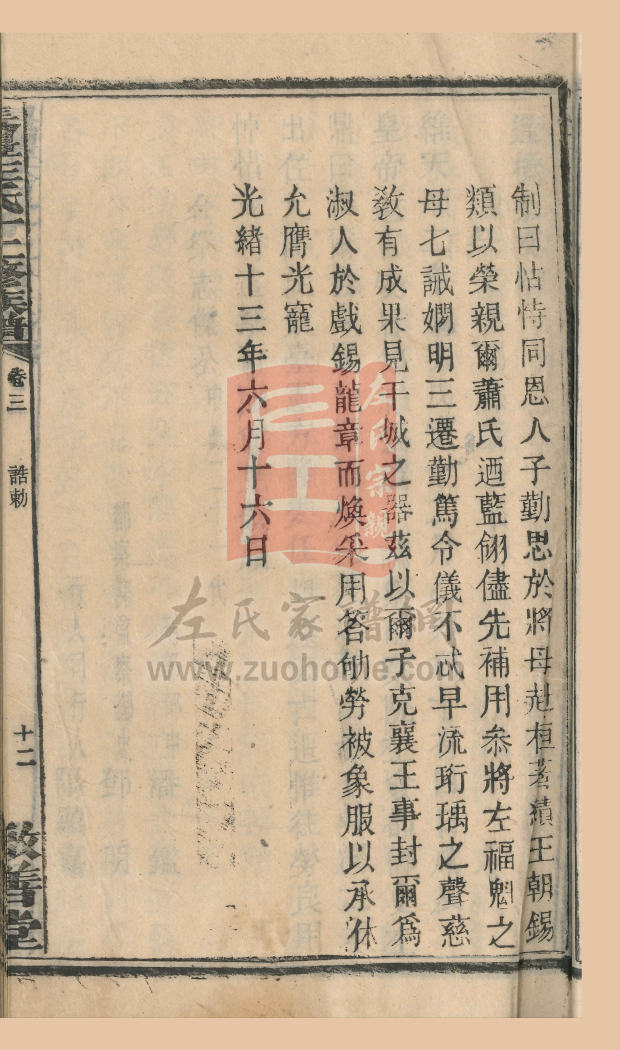 制曰怙恃同恩人子勤思於將母赳桓著績王朝錫
類以榮親爾蕭氏迺藍翎儘先補用叅將左福魁之
母七誡嫻明三遷勤篤令儀不忒早流珩瑀之聲慈
敎有成果見干城之器茲以爾子克襄王事封爾爲
淑人於戲錫龍章而煥采用答劬勞被象服以承休
允膺光寵
光緒十三年六月十六日
氏十二修族譜
卷三
誥勅
十二
善堂
左氏宗親
左氏家譜網
www.zuohome.com